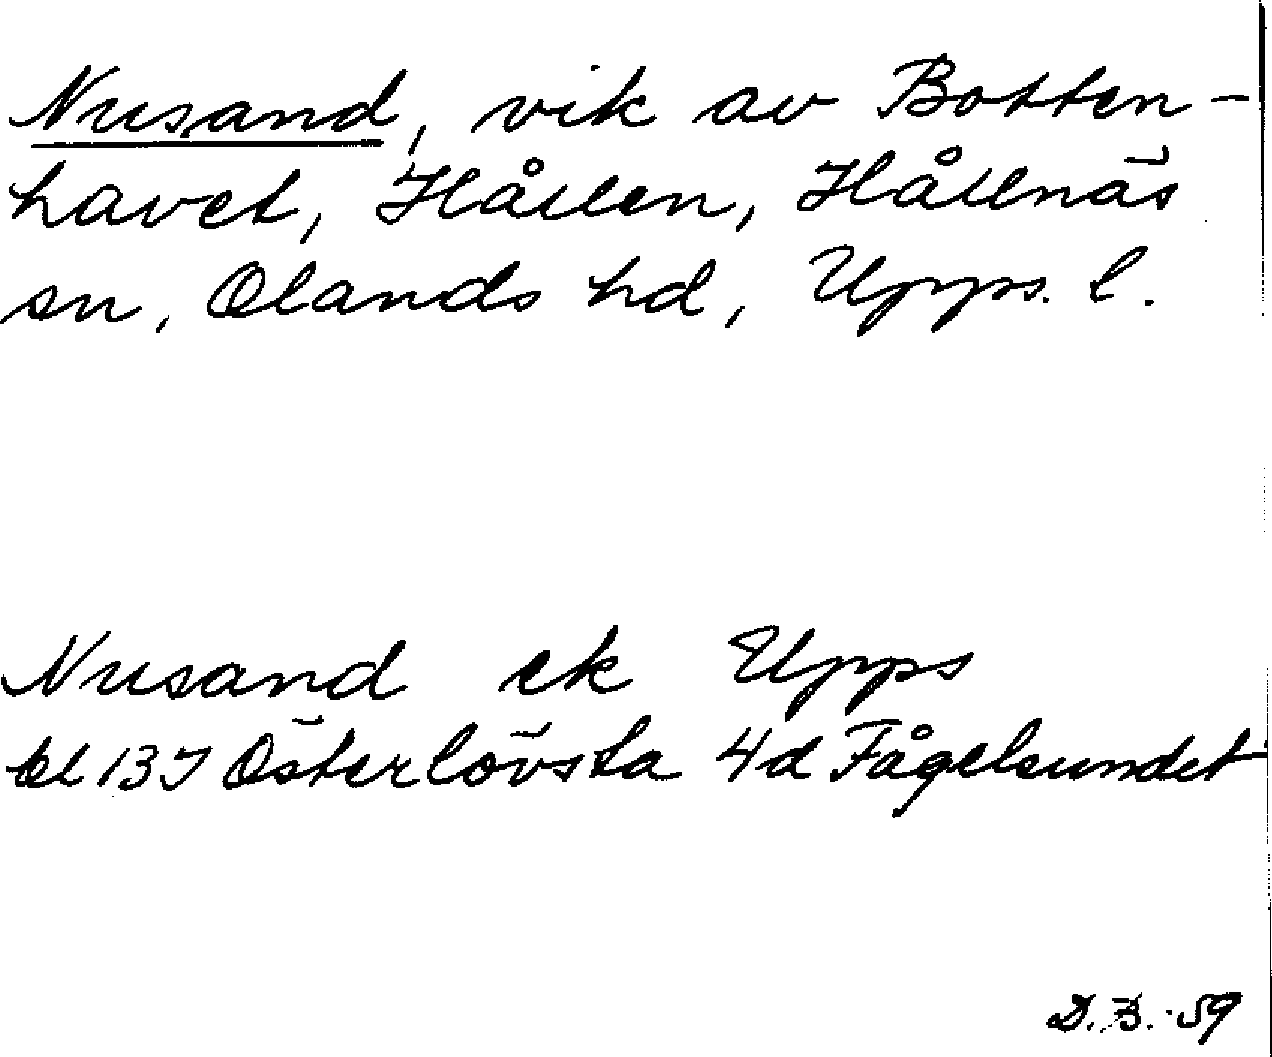 Nusand, vik av Botten-
havet, Hållen, Hållnäs
sn, Olands hd, Upps. l.
Nusand ek Upps
bl 13I Österlövsta 4d Fågelsundet
D.B. 59